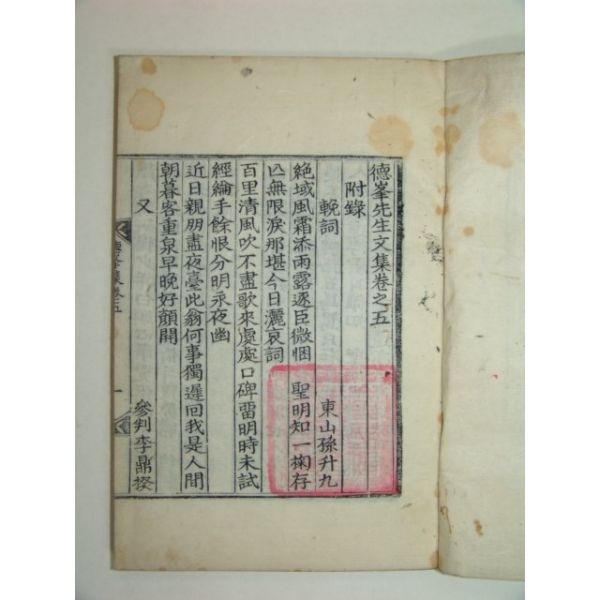 德峯先生文集卷之五
附錄
輓詞
東山孫升九
絶域風霜添雨露逐臣微悃 聖明知一掬存
亡無限淚那堪今日灑哀詞
百里淸風吹不盡歌來處處口碑留明時未試
經綸手餘恨分明永夜幽
近日親朋盡夜臺此翁何事獨遲回我是人間
朝暮客重泉早晩好顔開
又
參判李鼎揆